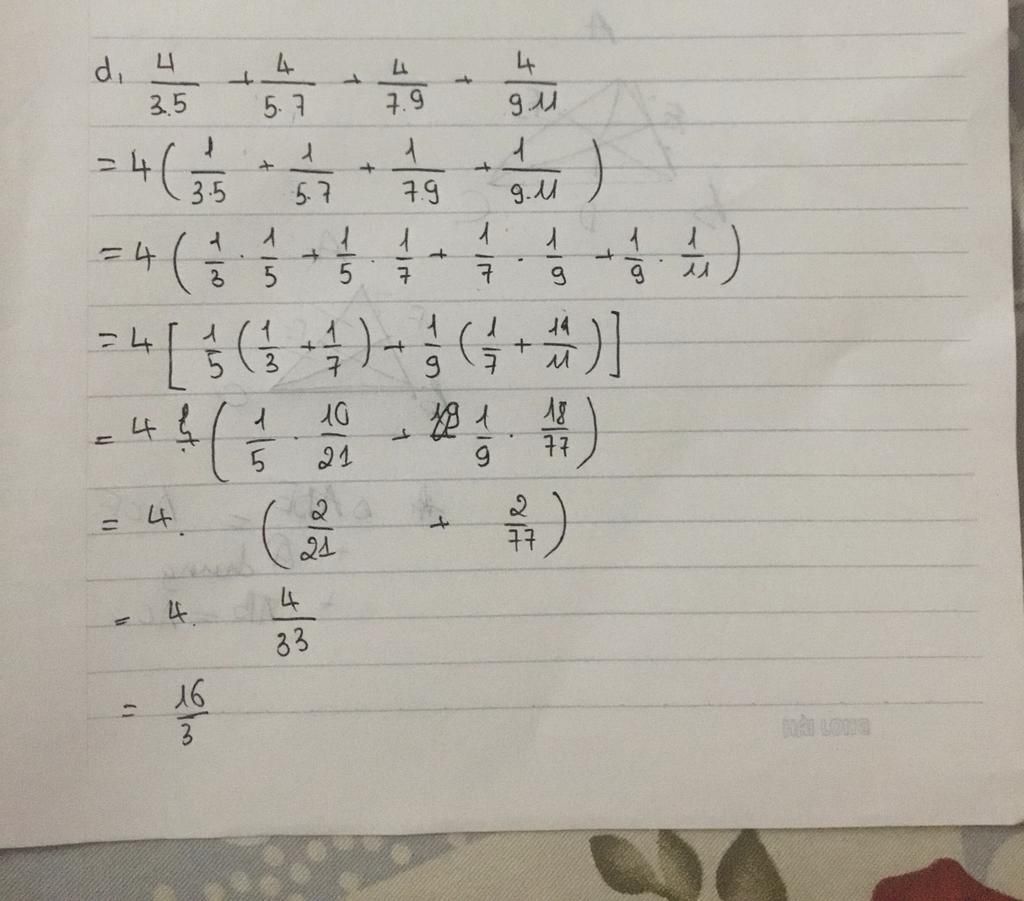 d, 4/3.5 + 4/5.7 + 4/7.9 + 4/9.11
= 4 ( 1/3.5 + 1/5.7 + 1/7.9 + 1/9.11 )
= 4 ( 1/3 . 1/5 + 1/5 . 1/7 + 1/7 . 1/9 + 1/9 . 1/11 )
= 4 [ 1/5 ( 1/3 + 1/7 ) + 1/9 ( 1/7 + 11/11 ) ]
= 4 ( 1/5 . 10/21 + 1/9 . 18/77 )
= 4. ( 2/21 + 2/77 )
= 4. 4/33
= 16/3
HẢI LONG